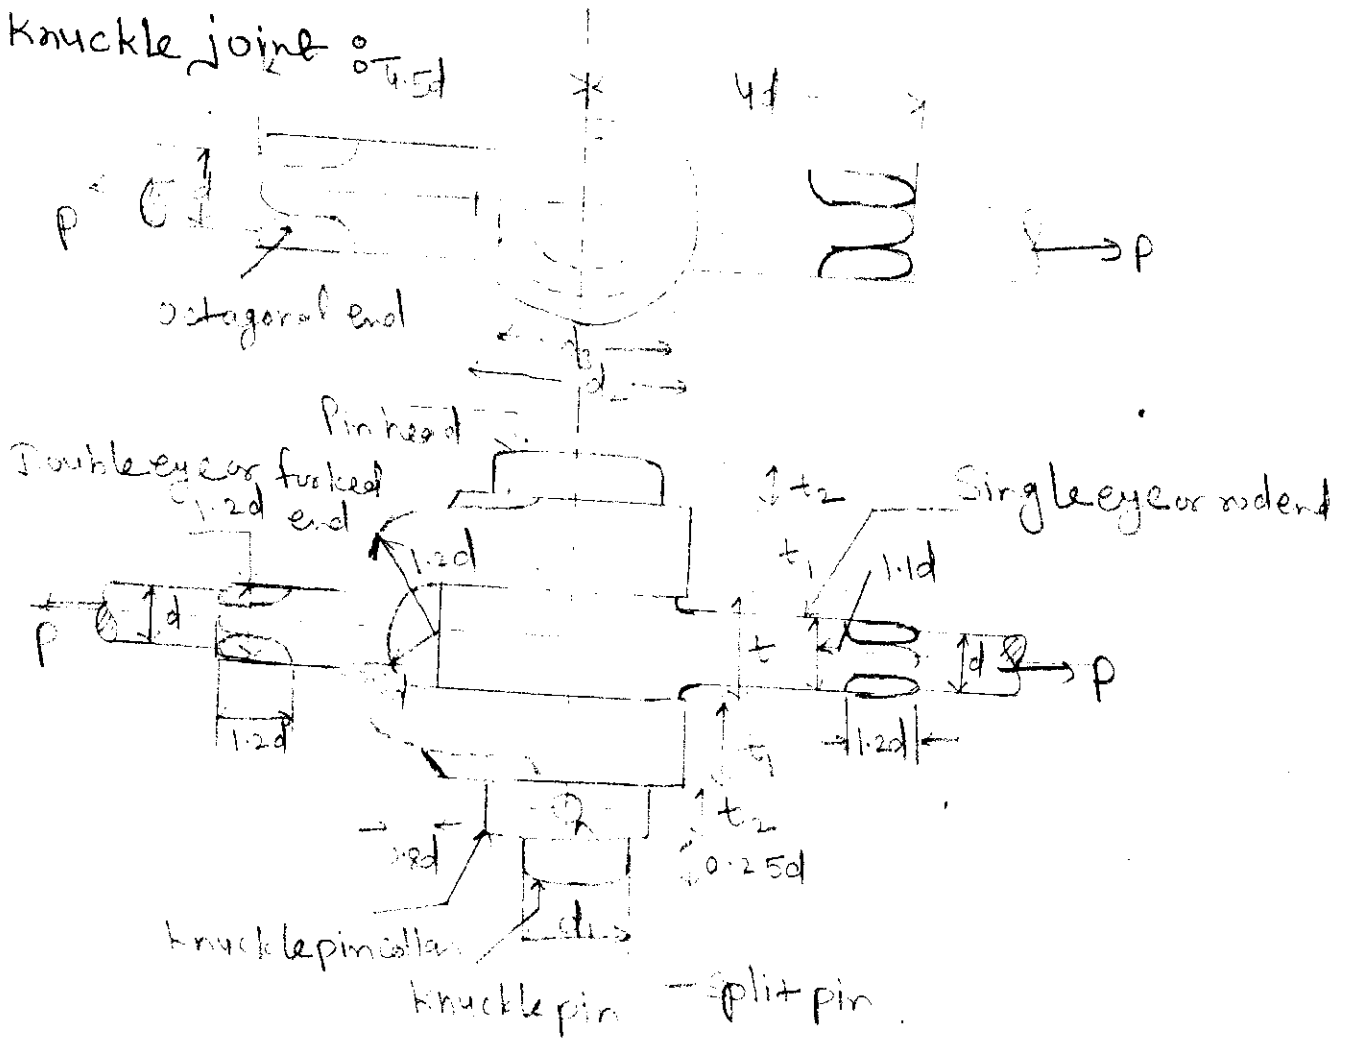 Knuckle joint :
4.5d
4d
d
P
P
octagonal end
d3
d2
Pin head
Double eye or forked
end
1.2d
t2
Single eye or rod end
t1
1.2d
1.1d
P
d
t
d
P
1.2d
t1
1.2d
t2
0.8d
0.25d
d1
Knuckle pin collar
Knuckle pin
split pin